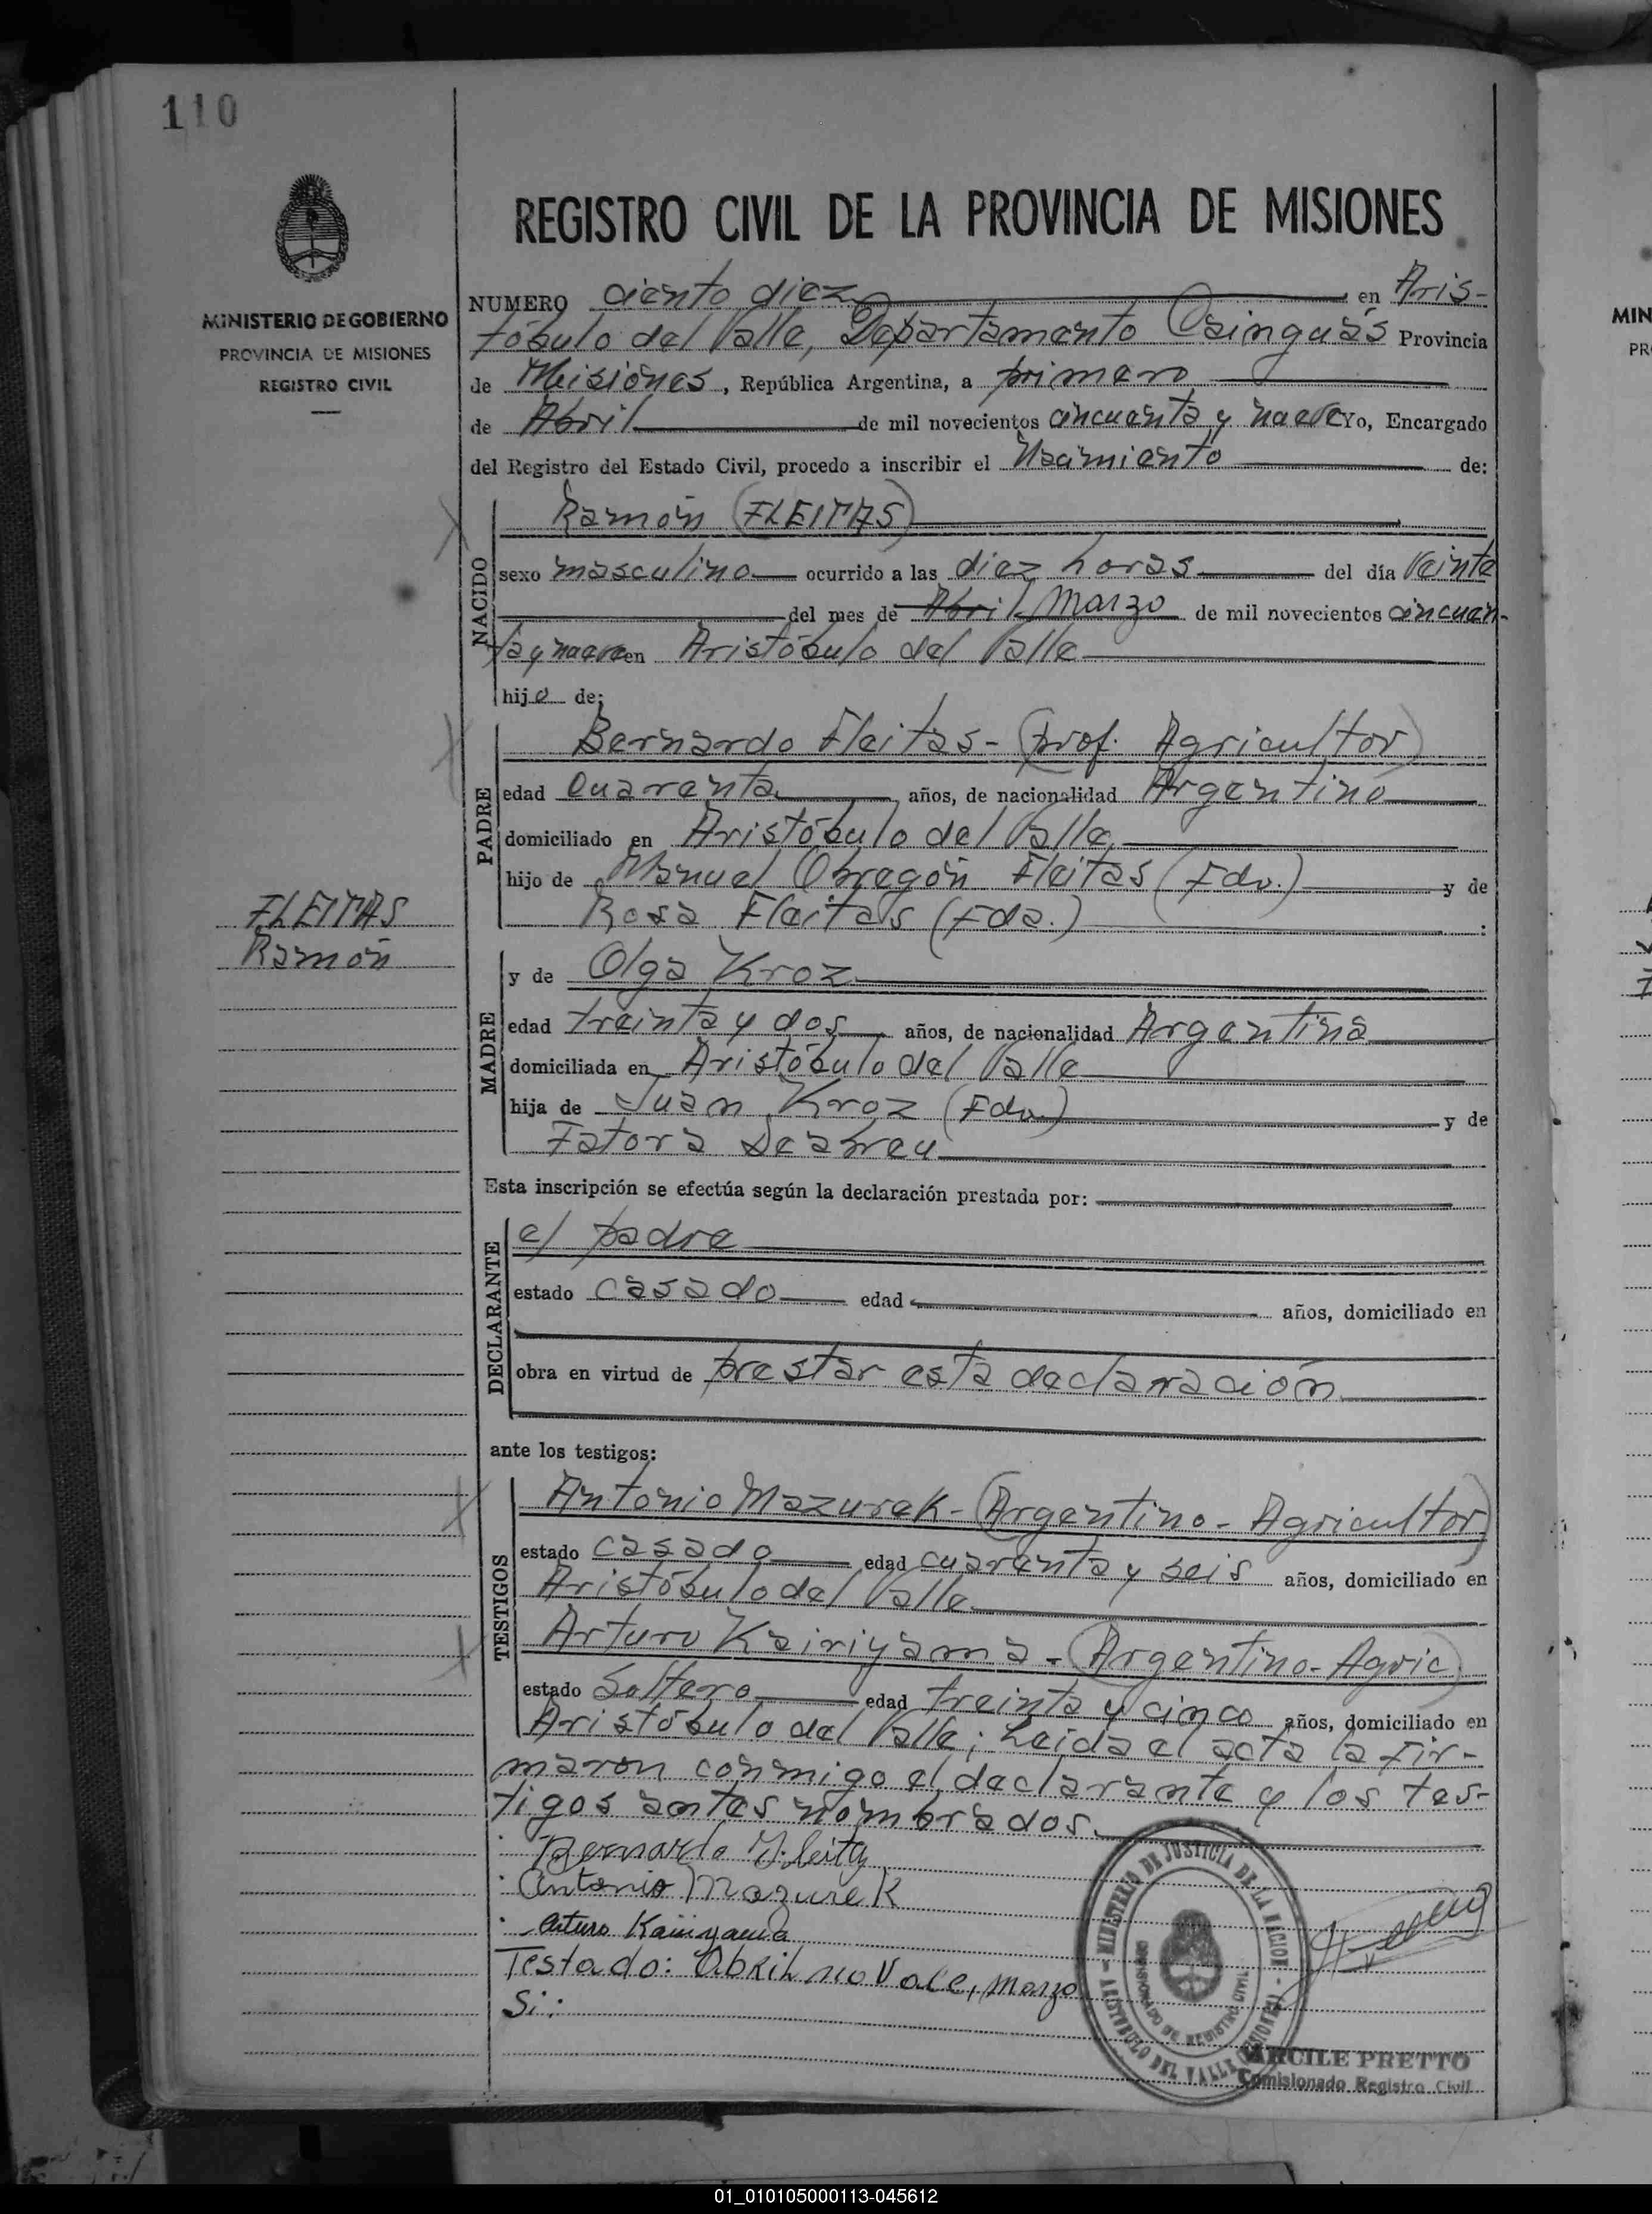 110
MINISTERIO DE GOBIERNO
PROVINCIA DE MISIONES
REGISTRO CIVIL
REGISTRO CIVIL DE LA PROVINCIA DE MISIONES
NUMERO ciento diez en Aris-
tóbulo del Valle, Departamento Cainguás Provincia
de Misiones, República Argentina, a primero
de Abril de mil novecientos cincuenta y nueve Yo, Encargado
del Registro del Estado Civil, procedo a inscribir el Nacimiento de:
NACIDO
Ramón (FLEITAS)
sexo masculino ocurrido a las diez horas del día Veinte
del mes de Abril Marzo de mil novecientos cincuen-
ta y nueve en Aristóbulo del Valle
hijo de:
PADRE
Bernardo Fleitas- (prof. Agricultor)
edad Cuarenta años, de nacionalidad Argentino
domiciliado en Aristóbulo del Valle
hijo de Manuel Obregón Fleitas (Fdo.) y de
Rosa Fleitas (Fda.) :
FLEITAS
Ramón
MADRE
y de Olga Kroz
edad treinta y dos años, de nacionalidad Argentina
domiciliada en Aristóbulo del Valle
hija de Juan Kroz (Fdo.) y de
Fatora Deabreu
Esta inscripción se efectúa según la declaración prestada por:
DECLARANTE
el padre
estado casado edad años, domiciliado en
obra en virtud de prestar esta declaración
ante los testigos:
TESTIGOS
Antonio Mazurek- (Argentino- Agricultor)
estado casado edad cuarenta y seis años, domiciliado en
Aristóbulo del Valle
Arturo Kairiyama - (Argentino- Agric)
estado Soltero edad treinta y cinco años, domiciliado en
Aristóbulo del Valle; Leida el acta la fir-
maron conmigo el declarante y los tes-
tigos antes nombrados.
Bernardo Fleita
Antonio Mazurek
Arturo Kairiyama
Testado: Abril no Vale, Marzo
Si:
MINISTERIO DE JUSTICIA DE LA NACION
REGISTRO CIVIL
ARISTOBULO DEL VALLE (MISIONES)
ARCILE PRETTO
Comisionado Registro Civil
01_010105000113-045612